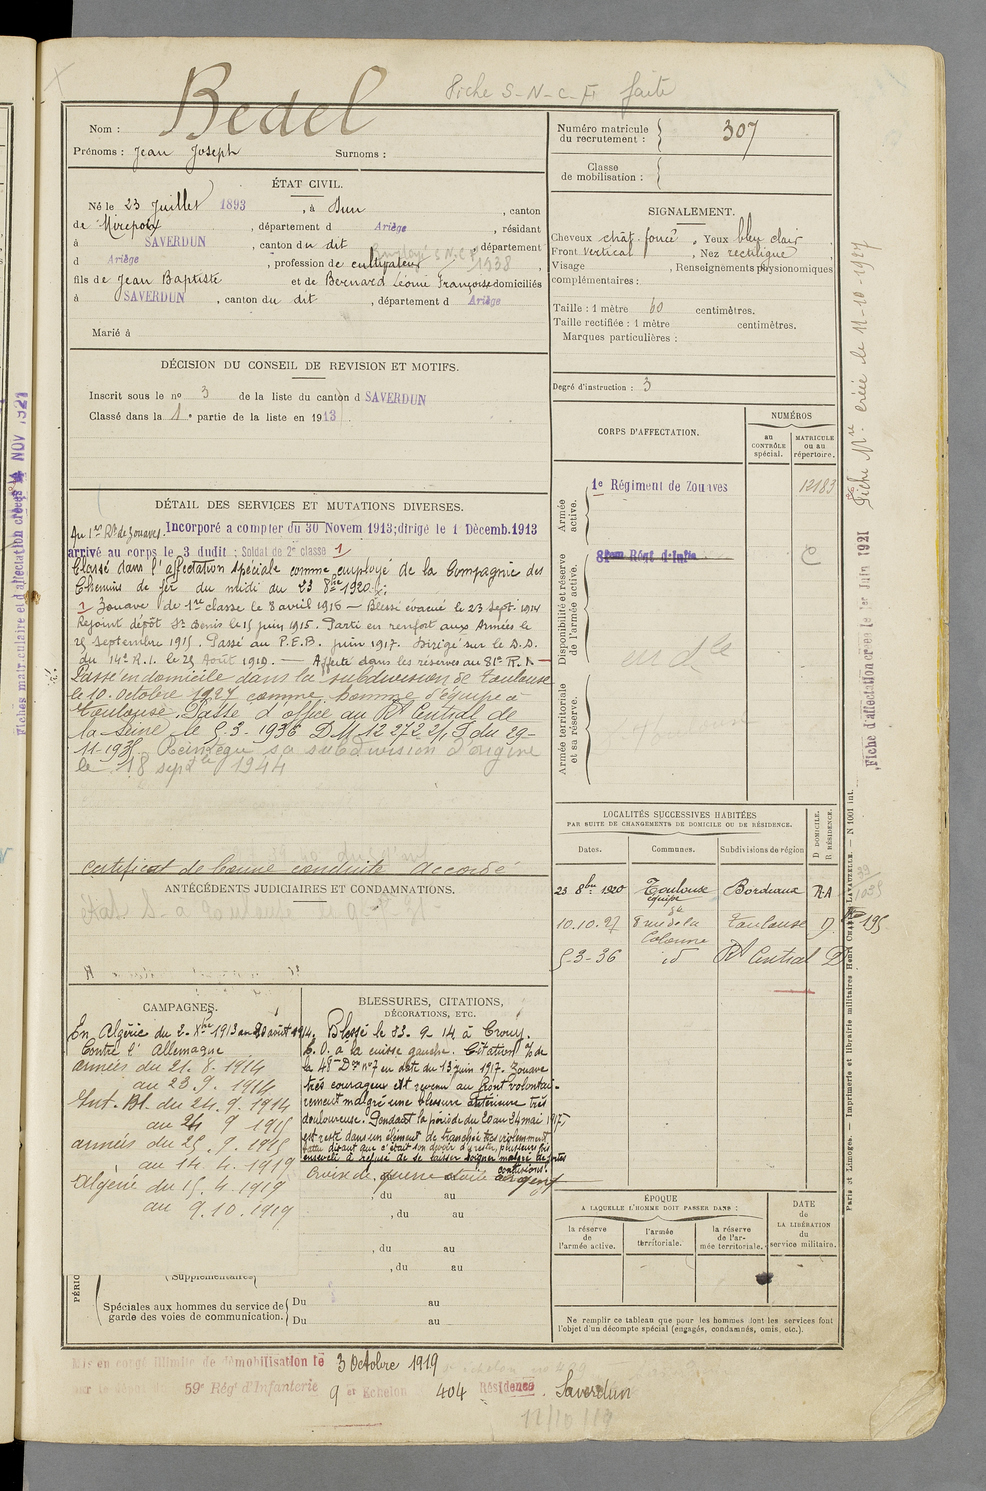 Fiche S-N-C-F faite
Nom : Bedel
Prénoms : Jean Joseph Surnoms :
Numéro matricule du recrutement : 307
Classe de mobilisation :
ÉTAT CIVIL.
Né le 23 Juillet 1893, à Dun, canton
de Mirepoix, département d Ariège, résidant
à SAVERDUN, canton du dit, département
d Ariège, profession de cultivateur Employé S.N.C.F. 1938,
fils de Jean Baptiste et de Bernard Léonie Françoise domiciliés
à SAVERDUN, canton du dit, département d Ariège
Marié à
SIGNALEMENT.
Cheveux chât. foncé, Yeux bleu clair
Front vertical, Nez rectiligne
Visage, Renseignements physionomiques
complémentaires :
Taille : 1 mètre 60 centimètres.
Taille rectifiée : 1 mètre centimètres.
Marques particulières :
Degré d'instruction : 3
DÉCISION DU CONSEIL DE REVISION ET MOTIFS.
Inscrit sous le no 3 de la liste du canton d SAVERDUN
Classé dans la 1e partie de la liste en 1913.
CORPS D'AFFECTATION.
NUMÉROS
au CONTRÔLE spécial.
MATRICULE ou au répertoire.
Armée active.
1e Régiment de Zouaves 12183
Disponibilité et réserve de l'armée active.
81eme Régt d'Infie
en dle
Armée territoriale et sa réserve.
DÉTAIL DES SERVICES ET MUTATIONS DIVERSES.
Au 1er Rt de Zouaves. Incorporé a compter du 30 Novem 1913; dirigé le 1 Décemb. 1913
arrivé au corps le 3 dudit ; Soldat de 2e classe 1
Classé dans l'affectation spéciale comme employé de la Compagnie des
Chemins de fer du midi du 23 8bre 1920
1 Zouave de 1re classe le 8 avril 1916 — Blessé évacué le 23 Sept. 1914
Rejoint dépôt St Denis le 15 juin 1915. Parti en renfort aux Armées le
25 septembre 1915. Passé au P.E.B. juin 1917. Dirigé sur le D.D.
du 14e R.I. le 25 Août 1919. — Affecté dans les réserves au 81e R.I. —
Passé en domicile dans la subdivision de Toulouse
le 10 Octobre 1927 comme homme d'équipe à
Toulouse. Passé d'office au Rt Central de
la Seine le 5-3-1936 DM 12 272 du 29-
11-1935. Réintégré sa subdivision d'origine
le 18 septbre 1944
certificat de bonne conduite accordé
LOCALITÉS SUCCESSIVES HABITÉES
PAR SUITE DE CHANGEMENTS DE DOMICILE OU DE RÉSIDENCE.
Dates. Communes. Subdivisions de région D DOMICILE. R RÉSIDENCE.
23 8bre 1920 Toulouse équipe Bordeaux
10.10.27 8 rue de la Colonne Toulouse D
5-3-36 id Rt Central D
ANTÉCÉDENTS JUDICIAIRES ET CONDAMNATIONS.
CAMPAGNES.
En Algérie du 2-Xbre 1913 au 20 août 1914.
Contre l'Allemagne
armées du 21.8.1914
au 23.9.1914
Int. Bl. du 24.9.1914
au 24 9 1915
armées du 25.9.1915
au 14.4.1919
Algérie du 15.4.1919
au 9.10.1919
BLESSURES, CITATIONS,
DÉCORATIONS, ETC.
Blessé le 23-9-14 à Crouy.
C. O. à la cuisse gauche. Citation o/ de
la 48e Don no 7 en date du 13 juin 1917. Zouave
très courageux est revenu au front volontai-
rement malgré une blessure antérieure très
douloureuse. Pendant la période du 20 au 24 mai 1917
est resté dans un élément de tranchée très violemment
battu disant que c'était son devoir d'y rester, plusieurs fois
enseveli a refusé de se laisser soigner malgré de fortes
contusions.
Croix de guerre étoile argent
, du au
, du au
, du au
, du au
(Supplémentaires)
Spéciales aux hommes du service de garde des voies de communication. Du au
Du au
ÉPOQUE
A LAQUELLE L'HOMME DOIT PASSER DANS :
la réserve de l'armée active.
l'armée territoriale.
la réserve de l'armée territoriale.
DATE de LA LIBÉRATION du service militaire.
Ne remplir ce tableau que pour les hommes dont les services font
l'objet d'un décompte spécial (engagés, condamnés, omis, etc.).
Mis en congé illimité de démobilisation le 3 Octobre 1919
59e Rég d'Infanterie 9 e Echelon 404 Résidence. Saverdun
12/10/19
Fiche Mre créée le 11-10-1927
Fiche d'affectation créée le 1er Juin 1921
Paris et Limoges. — Imprimerie et librairie militaires Henri CHARLES-LAVAUZELLE. — N 1001 int.
Fiches matriculaire et d'affectation créées le NOV 1927